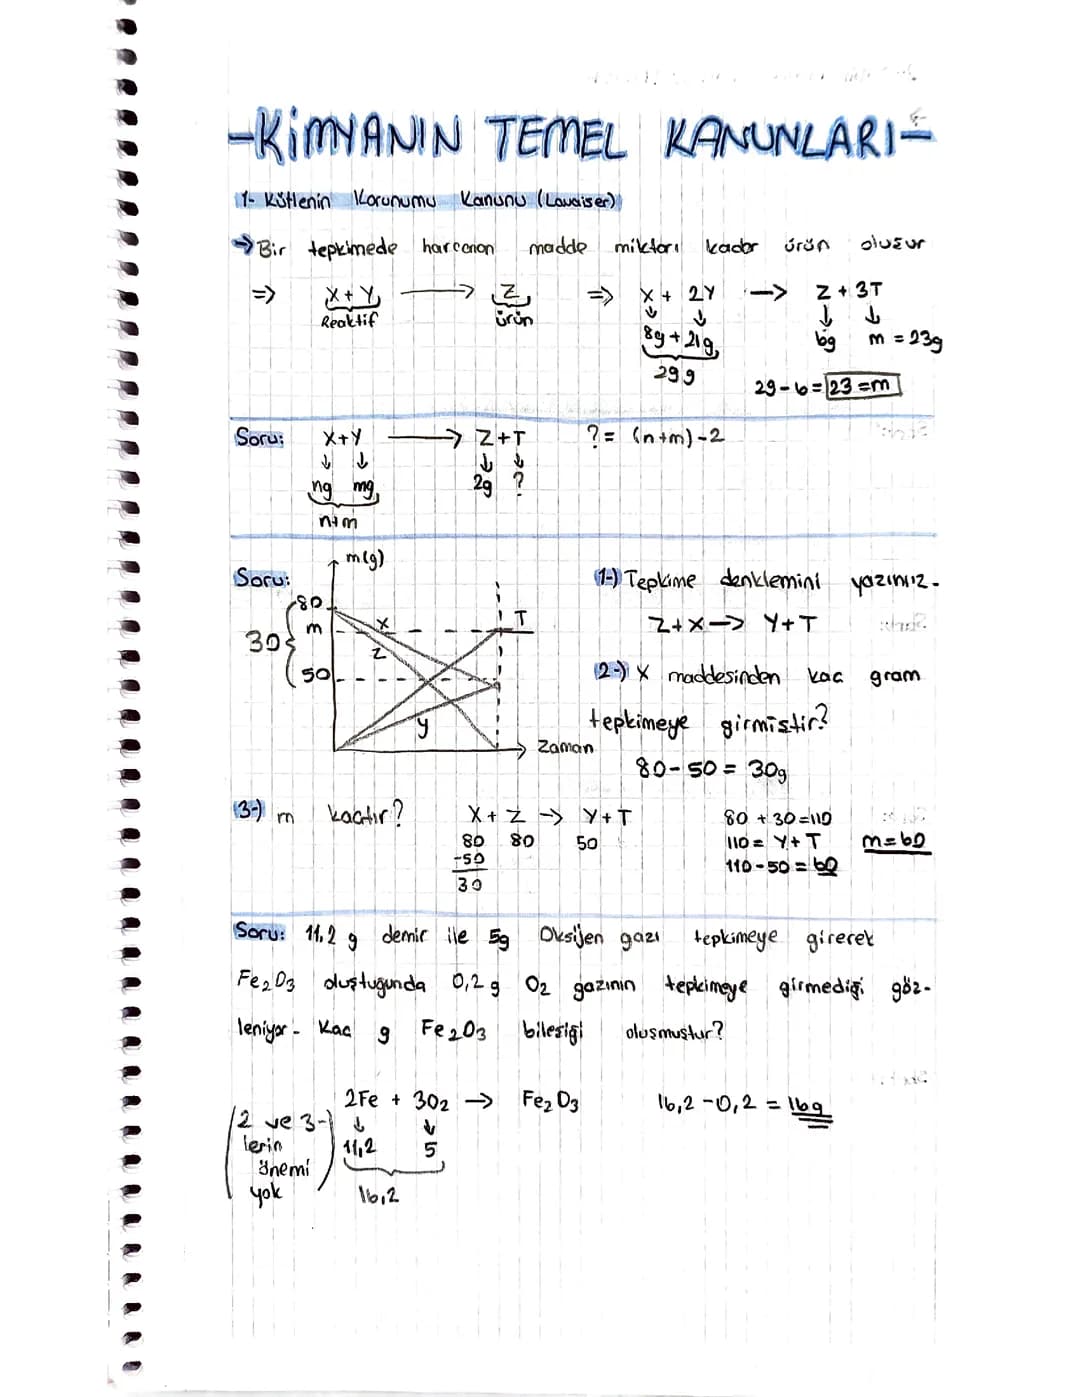 -KİMYANIN TEMEL KANUNLARI-
1- Kütlenin Korunumu Kanunu (Lavaiser)
→ Bir tepkimede harcanan madde miktarı kadar ürün oluşur
⇒ X + Y → Z ⇒ X + 2Y → Z + 3T
Reaktif ürün 8g + 21g 6g m = 23g
29g
29-6 = 23 = m
Soru: X+Y → Z+T ? = (n+m)-2
ng mg 2g ?
n+m
Soru: m(g)
80
m
30
50
X
Z
T
y
Zaman
1-) Tepkime denklemini yazınız.
Z+X → Y+T
2-) X maddesinden kaç gram
tepkimeye girmiştir?
80-50 = 30g
3-) m kaçtır? X + Z → Y + T 80 + 30 = 110
80 80 50 110 = Y+T m=60
-50 110-50 = 60
30
Soru: 11,2 g demir ile 5g Oksijen gazı tepkimeye girerek
Fe2O3 oluştuğunda 0,2 g O2 gazının tepkimeye girmediği göz-
leniyor. Kaç g Fe2O3 bileşiği oluşmuştur?
2Fe + 3O2 → Fe2O3 16,2 - 0,2 = 16g
(2 ve 3-
lerin
önemi
yok)
11,2 5
16,2